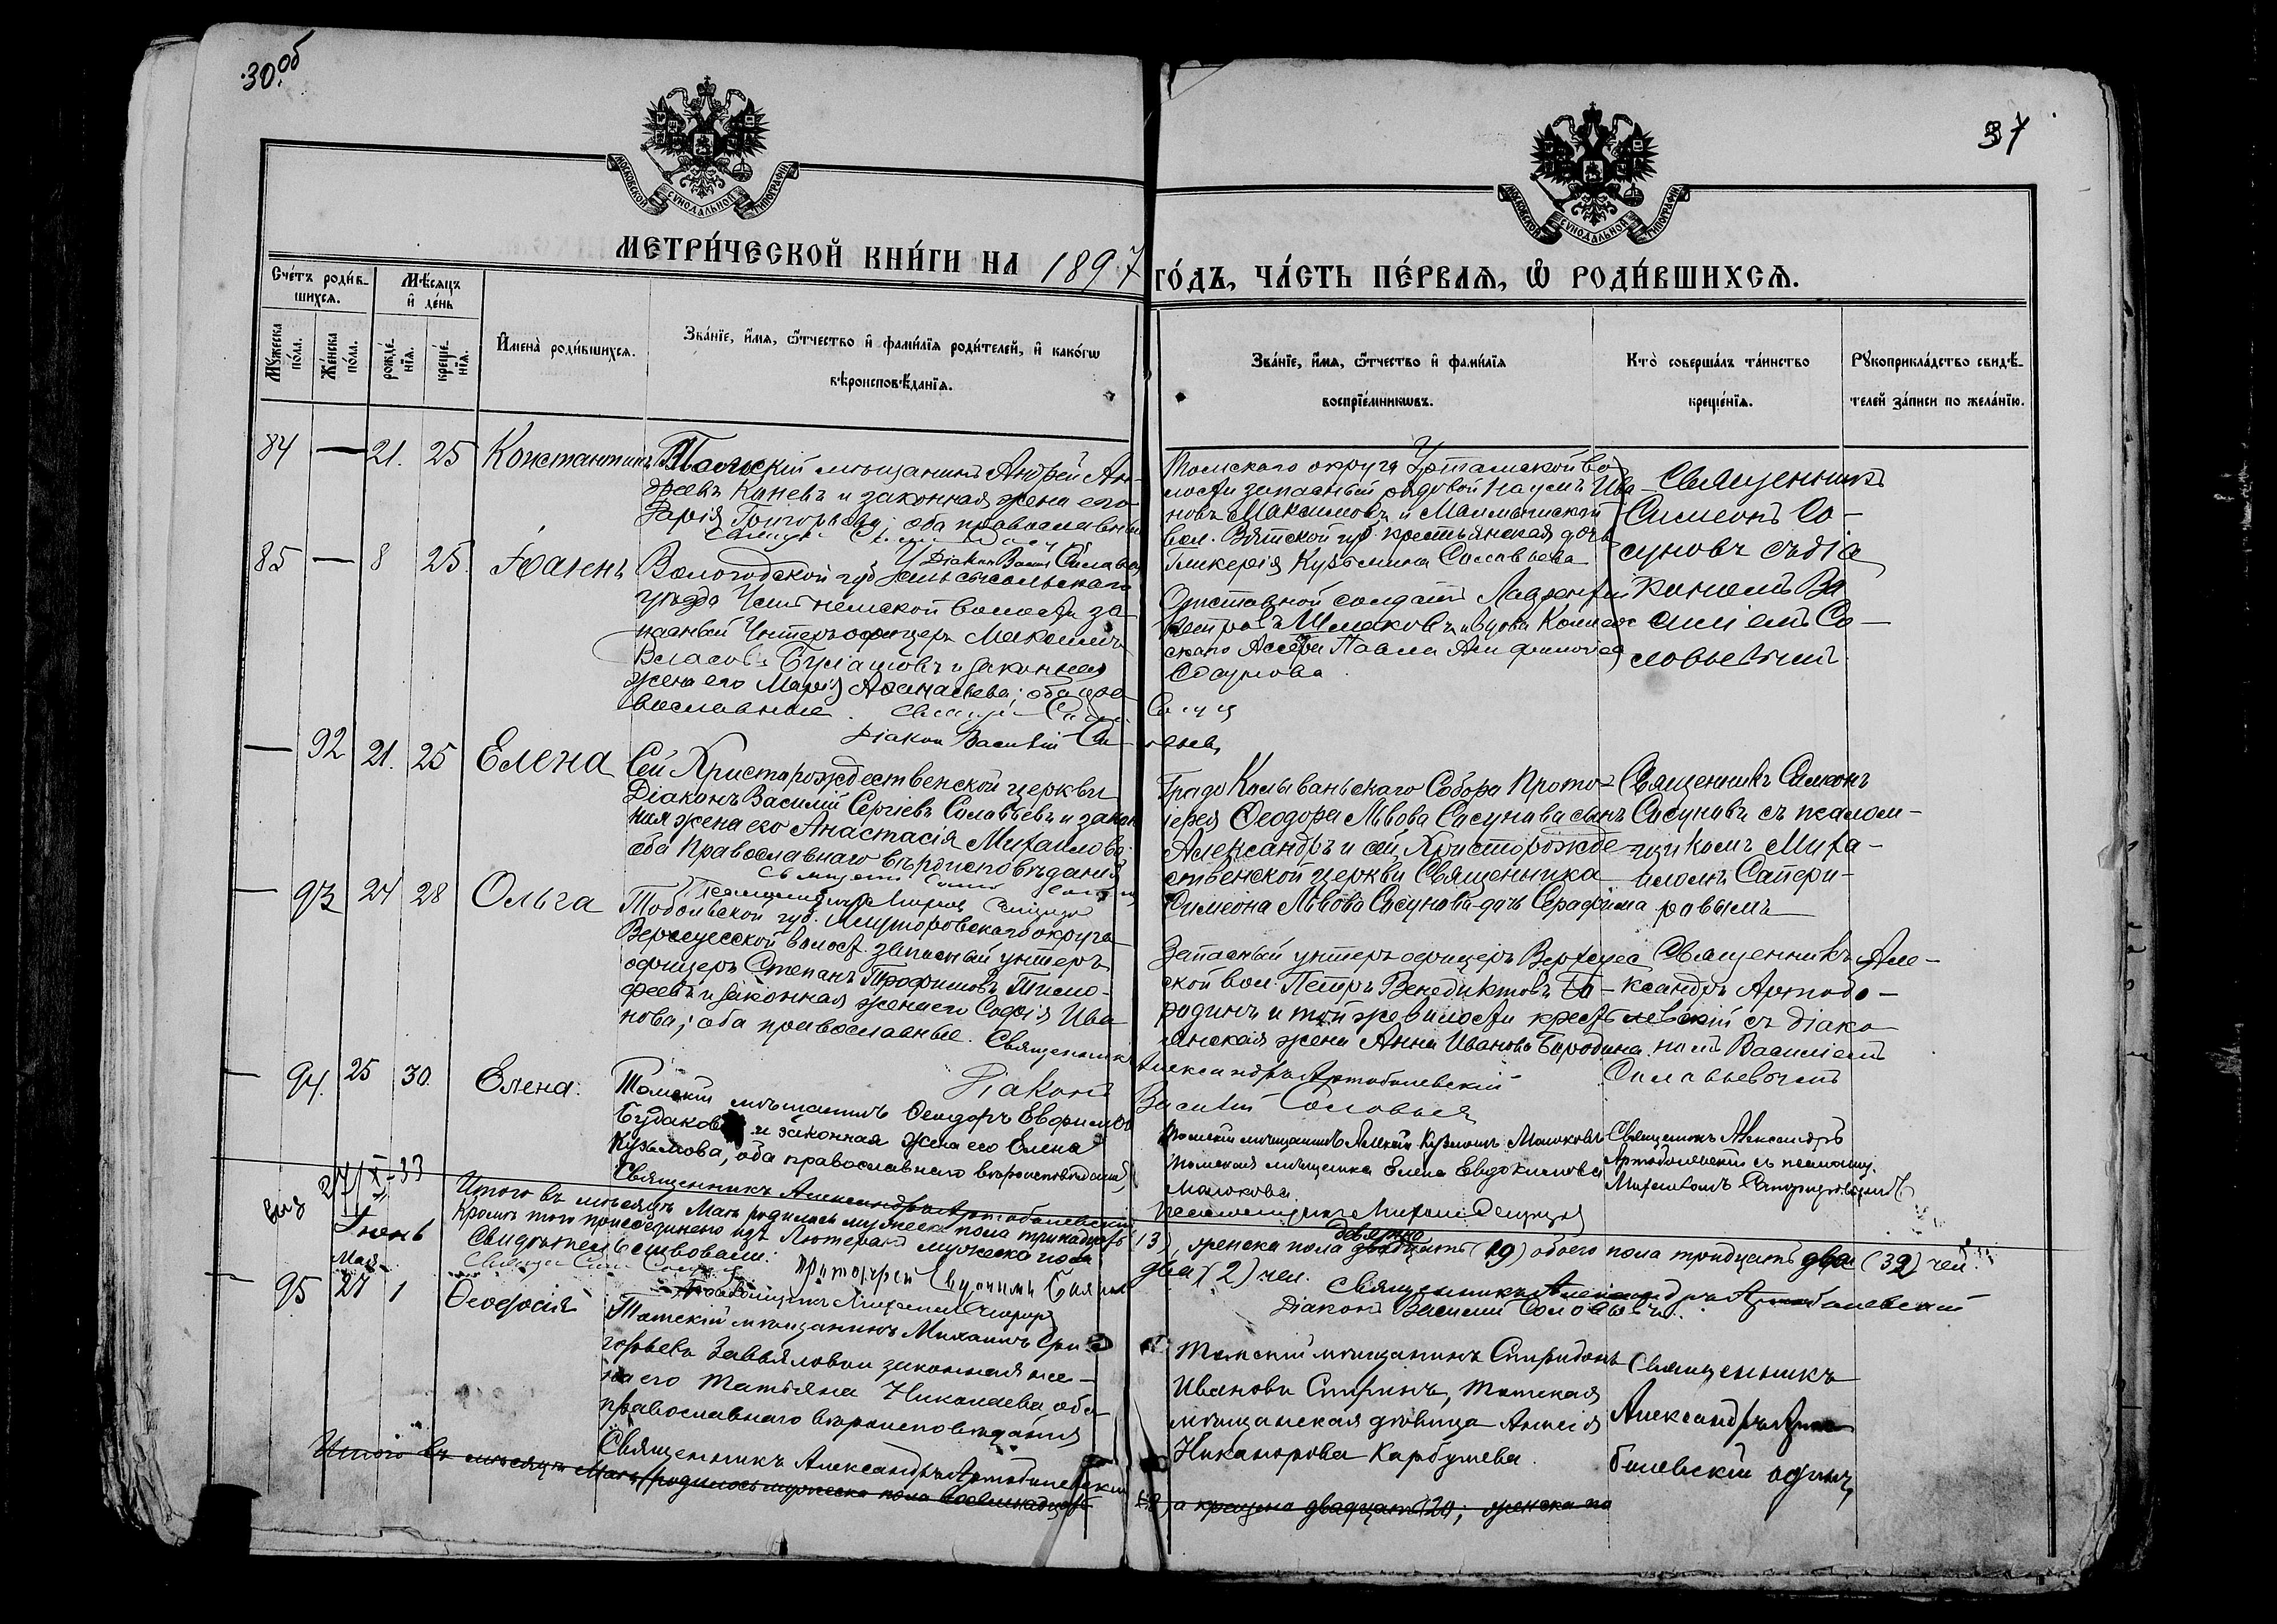 30 об
37
МОСКОВСКОЙ СѴНОДАЛЬНОЙ ТИПОГРАФІИ
МОСКОВСКОЙ СѴНОДАЛЬНОЙ ТИПОГРАФІИ
МЕТРИ́ЧЕСКОЙ КНИ́ГИ НА 1897
ГО́ДЪ, ЧА́СТЬ ПЕ́РВАЯ, Ѡ РОДИ́ВШИХСЯ.
Сче́тъ роди́вшихся.
Мѣсяцъ и де́нь
Мꙋжеска по́ла.
Же́нска по́ла.
рожде́нїя.
креще́нїя.
Имена̀ роди́вшихся.
Зва́нїе, и́мя, ѻ́тчество и фами́лїя роди́телей, и како́гѡ
вѣроисповѣ́данїя.
Зва́нїе, и́мя, ѻ́тчество и фами́лїя
воспрїе́мникѡвъ.
Кто̀ соверша́лъ та́инство
креще́нїя.
Рꙋкоприкла́дство свидѣ́телей за́писи по жела́нїю.
84 — 21. 25 Константинъ
Томскій мѣщанинъ Андрей Ан-
дреевъ Каневъ и законная жена его
Дарія Григорьева; оба православные
Томскаго округа Уртамской во-
лости запасный рядовой Наумъ Ива-
новъ Максимовъ и
вол. Вятской губ. крестьянская дочь
Гликерія Кузьмина Соловьева
Священникъ
Симеонъ Со-
суновъ съ діа
кономъ Ва
силіемъ Со-
ловьевымъ
85 — 8 25. Іоаннъ
Діаконъ Василій Соловьев
Вологодской губ. Усть сысольскаго
уѣзда Усть немской волости за-
пасный Унтеръ офицеръ Максимъ
Власовъ и законная
жена его Марія Аѳанасьева; оба пра-
вославные
Отставной солдатъ Лаврентій
Петровъ Шмаковъ и вдова Коллеж-
скаго Ассес. Павла
Діаконъ Василій Соловьев
— 92 21. 25 Елена
Сей Христорождественской церкви
Діаконъ Василій Сергіевъ Соловьевъ и закон
ная жена его Анастасія Михаилова
оба Православнаго вѣроисповѣданія
Града Колыванскаго Собора Прото-
іерея Ѳеодора Львова Сосунова сынъ
Александръ и сей Христорожде-
ственской церкви Священника
Симеона Львова Сосунова дочь Серафима
Священникъ Симеонъ
Сосуновъ съ псалом-
щикомъ Миха-
иломъ
— 93 24 28 Ольга
Тобольской губ. Ялуторовскаго округа
волост. запасный унтеръ
офицеръ Степанъ Трофимовъ Тимо-
феевъ и законная жена его Софія Ива
нова; оба православные. Священникъ
Александръ Артоболевскій
Діаконъ
Василій Соловьев
Запасный унтеръ офицеръ
ской вол. Петръ Венедиктовъ Бо-
родинъ и той же волости кресть
янская жена Анна Иванова Бородина
Священникъ Але-
ксандръ Артобо-
левскій съ діако
номъ Василіемъ
Соловьевымъ
— 94. 25 30. Елена.
Томскій мѣщанинъ Ѳеодоръ Евфимовъ
Будаковъ и законная жена его Елена
Кузьмова, оба православнаго вѣроисповѣданія
Священникъ Александръ Артоболевскій
Томскій мѣщанинъ Алексій Кузьминъ Малюковъ
Томская мѣщанка Елена Евдокимова
Малюкова.
Священникъ Александръ
Артоболевскій съ псаломщ.
выд 24/X-33
Итого въ мѣсяцѣ Маѣ родилось мужеска пола тринадцать (13), женска пола девятнадцать (19) обоего пола тридцать два (32) чел.
Кромѣ того присоединено изъ Лютеранъ мужеска пола два (2) чел.
Свидѣтельствовали:
Священникъ Александръ Артоболевскій
Діаконъ Василій Соловьевъ.
Іюнь
Мая
— 95 27 1 Ѳеодосія
Томскій мѣщанинъ Михаилъ Гри
горьевъ Завьяловъ и законная же-
на его Татьяна Николаева, оба
православнаго вѣроисповѣданія
Священникъ Александръ Артоболевскій
Томскій мѣщанинъ Спиридонъ
Ивановъ Спиринъ, Томская
мѣщанская дѣвица
Никанорова Карбышева.
Священникъ
Александръ Арто
болевскій одинъ
Итого въ мѣсяцѣ Маѣ родилось мужеска пола восемнадцать
(18) а крещено двадцать (20); женска по